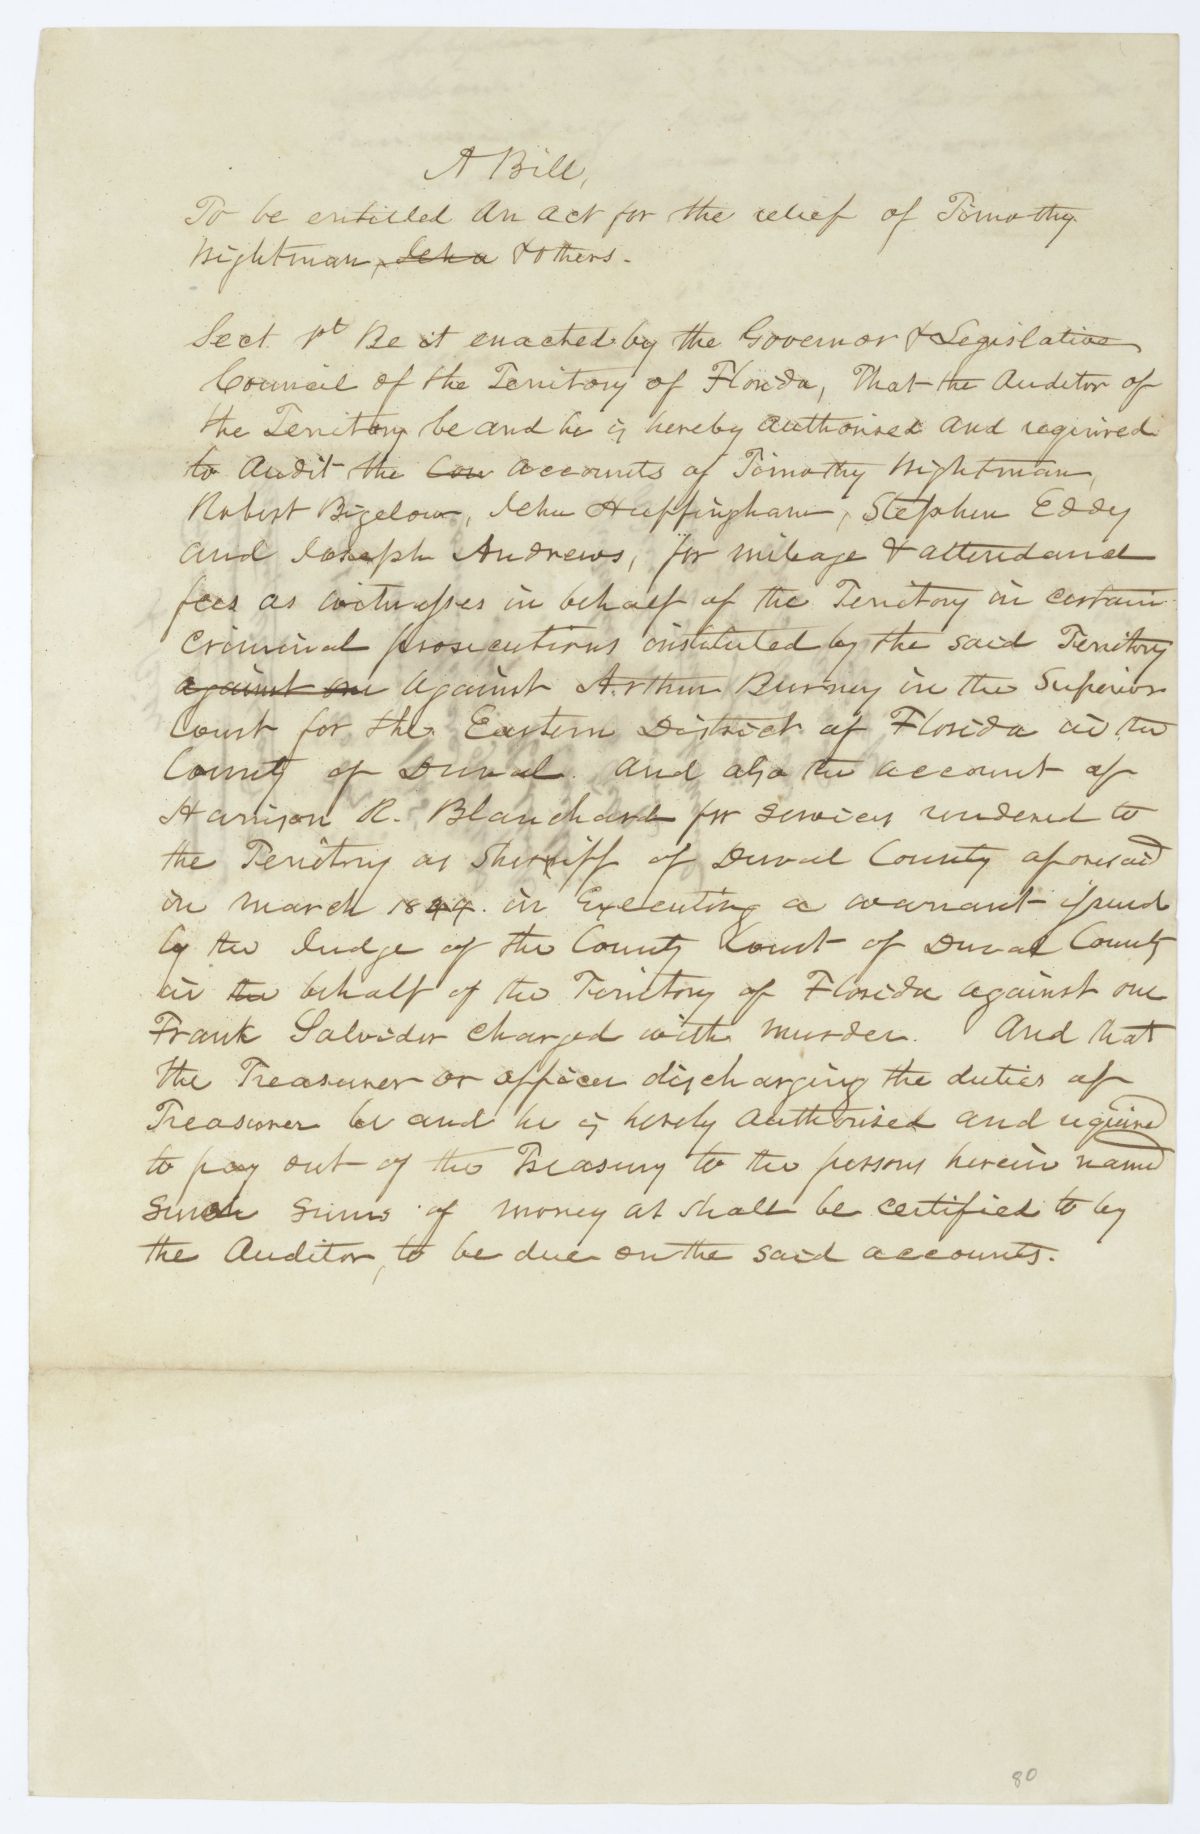 A Bill,
To be entitled An Act for the relief of Timothy
Wightman, Jehu & others.
Sect. 1st Be it enacted by the Governor & Legislative
Council of the Territory of Florida, That the Auditor of
the Territory be and he is hereby authorised and required
to Audit the Cou accounts of Timothy Wightman,
Robert Bigelow, Jehu Huffingham, Stephen Eddy
and Joseph Andrews, for mileage & attendance
fees as witnesses in behalf of the Territory in certain
criminal prosecutions instituted by the said Territory
against one against Arthur Burney in the Superior
Court for the Eastern District of Florida in the
County of Duval. And also the account of
Harrison R. Blanchard for services rendered to
the Territory as Sheriff of Duval County aforesaid
in March 1844. in Executing a warrant issued
by the Judge of the County Court of Duval County
in the behalf of the Territory of Florida against one
Frank Salvidor charged with murder. And that
the Treasurer or officer discharging the duties of
Treasurer be and he is hereby authorised and required
to pay out of the Treasury to the persons herein named
such sums of money as shall be certified to by
the Auditor, to be due on the said accounts.
80